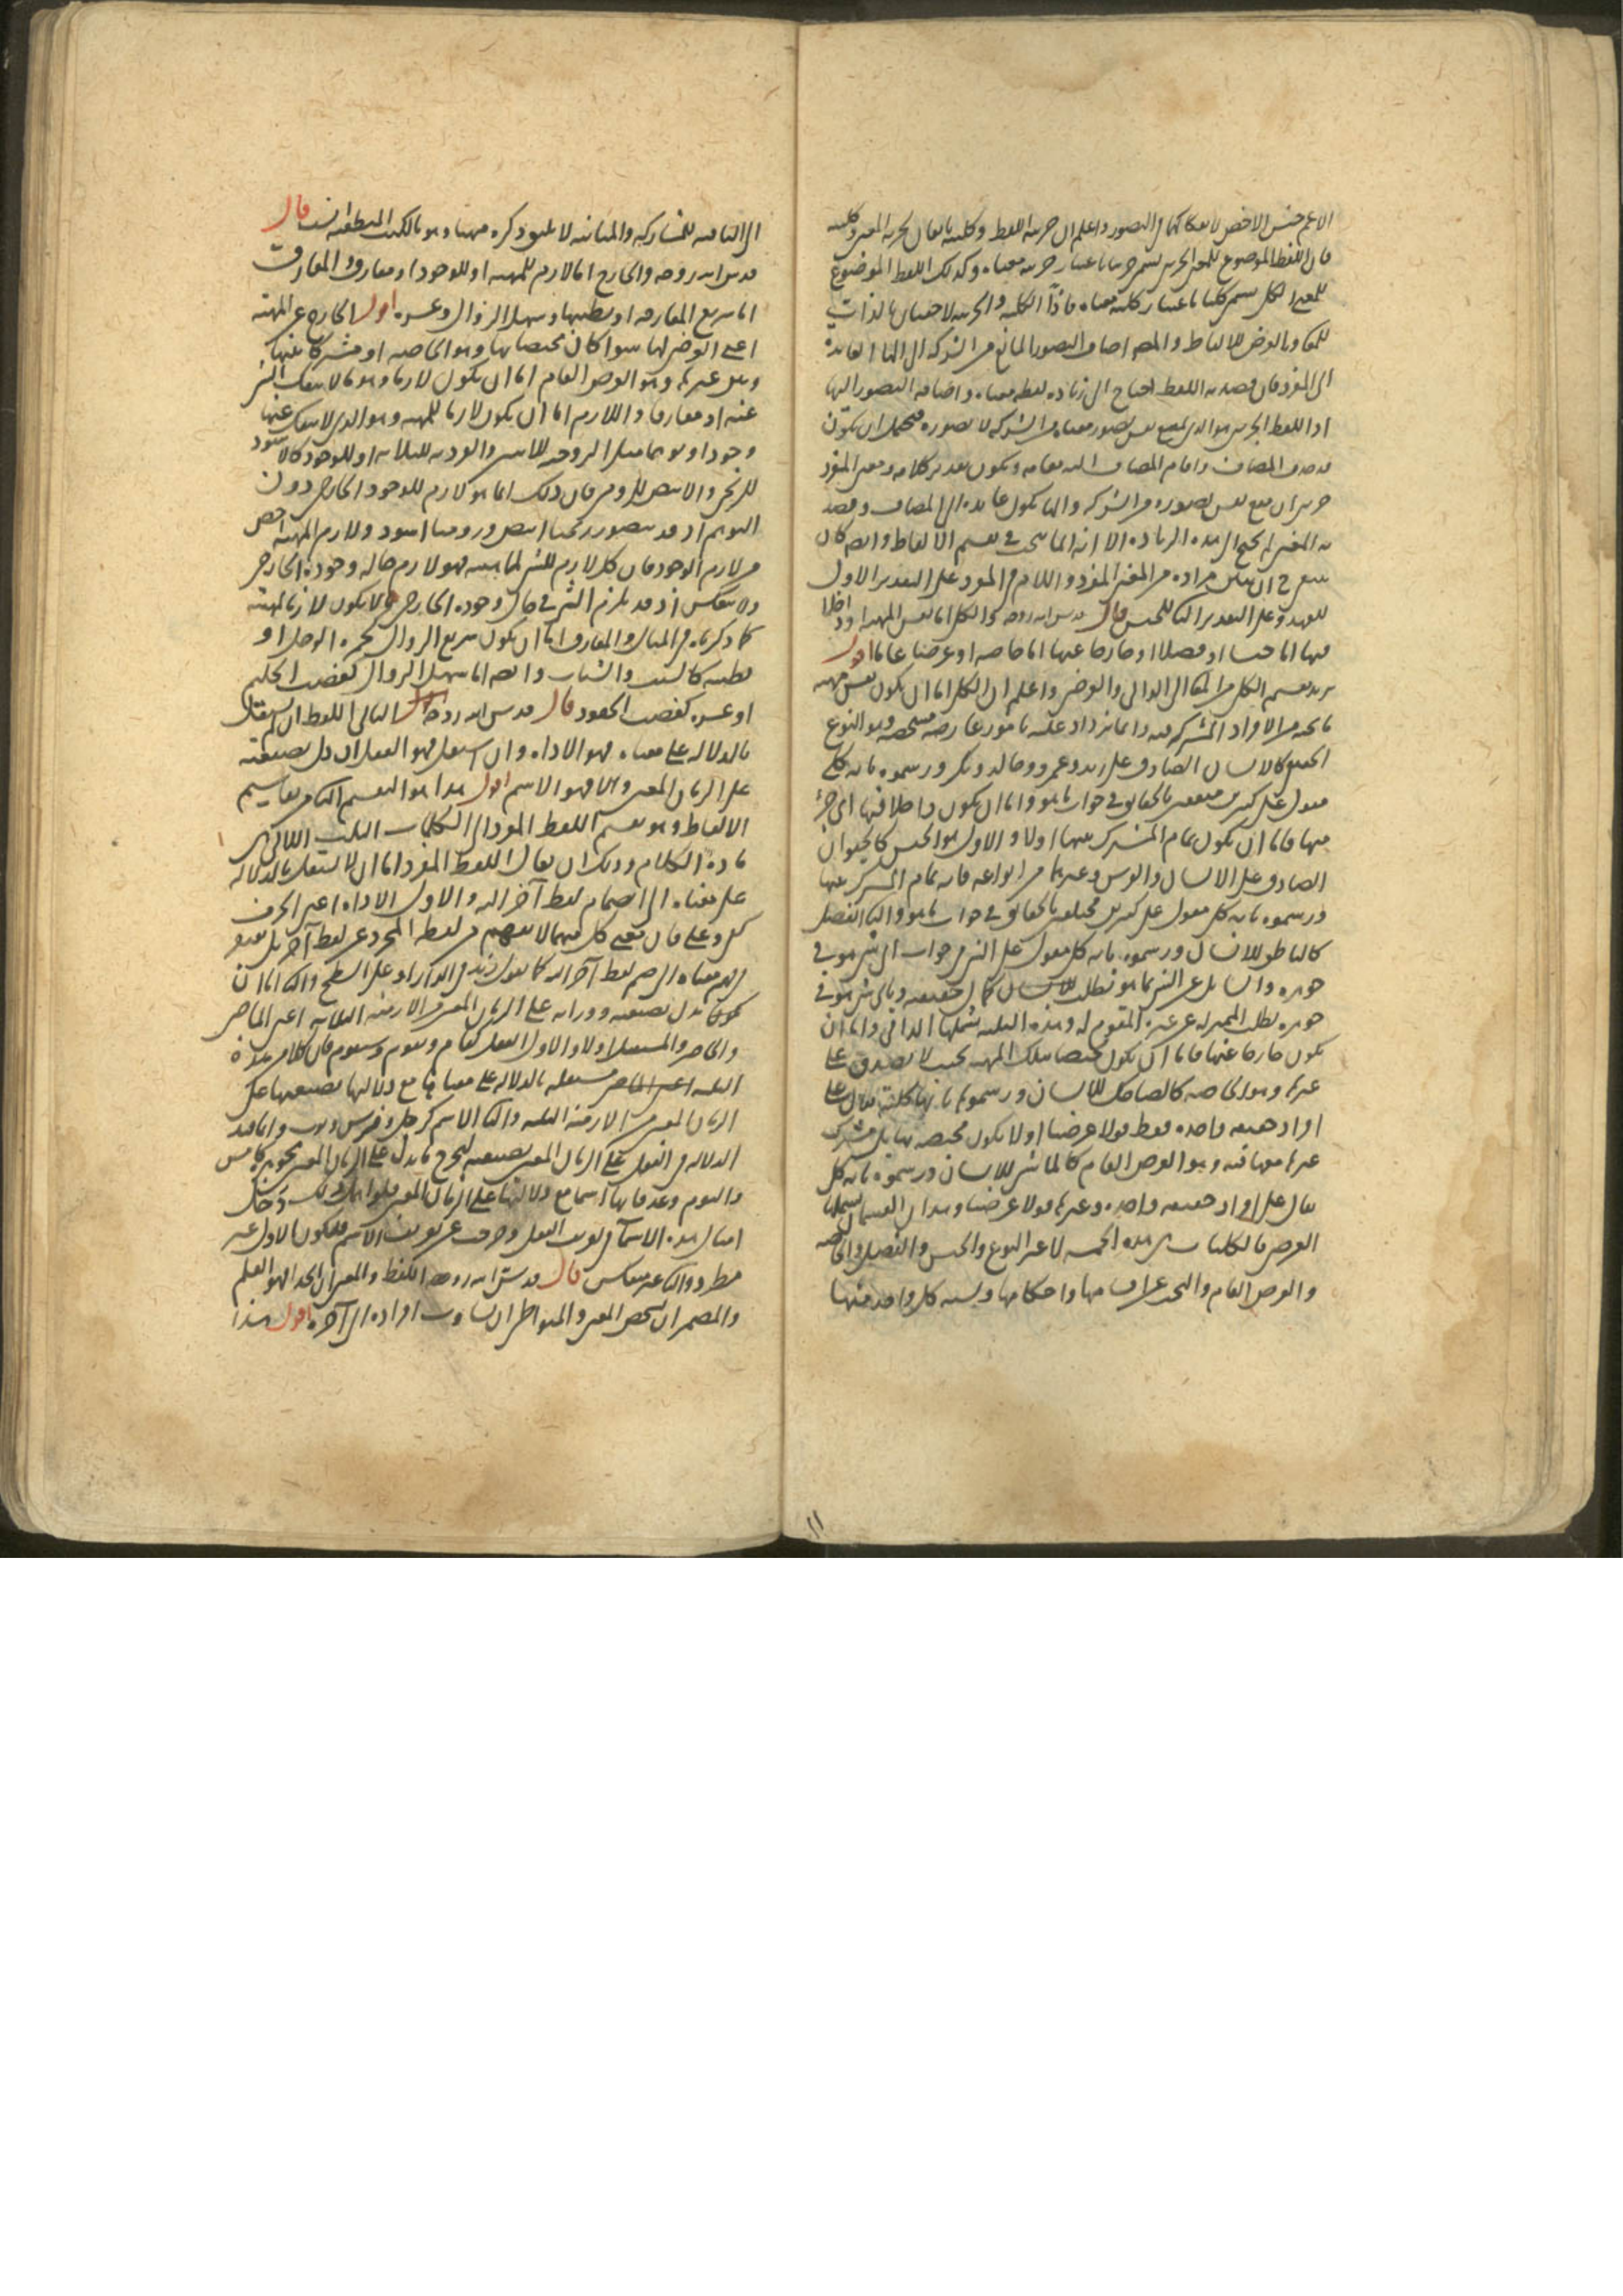 الاعم جنس الاخص لانفكاكهما في التصور واعلم ان جزئية اللفظ وكليته تابعان لجزئية المعنى وكليته
فان اللفظ الموضوع للمعنى الجزئي يسمى جزئيا باعتبار جزئية معناه وكذلك اللفظ الموضوع
للمعنى الكلي يسمى كليا باعتبار كلية معناه فاذا الكلية والجزئية لاحقتان بالذات
للمعنى وبالعرض للالفاظ والمصنف اضاف التصور المانع من الشركة الى الهاء العائدة
الى المفرد فان قصد به اللفظ احتاج الى زيادة لفظة معناه واضافة التصور اليها
اذ اللفظ الجزئي هو الذي يمنع نفس تصور معناه من الشركة لا تصوره فيحتمل ان يكون
قد حذف المضاف واقام المضاف اليه مقامه ويكون تقدير كلامه ومعنى المفرد
جزئي ان منع نفس تصوره من الشركة والهاء يكون عائدة الى المضاف وقصد
به المعنى لم يحتج الى هذه الزيادة الا انه انما يبحث في تقسيم الالفاظ وان كان
للعهد وعلى التقدير الثاني للجنس قال قدس الله روحه والكلي اما نفس المهية او داخلا
فيها اما جنسا او فصلا او خارجا عنها اما خاصة او عرضا عاما اقول
يريد تقسيم الكلي الى الذاتي والعرضي واعلم ان الكلي اما ان يكون نفس مهية
ما تحته من الافراد المشتركة فيه وانما يزداد عليه بامور عارضة مشخصة وهو النوع
الحقيقي كالانسان الصادق على زيد وعمرو وخالد وبكر ورسموه بانه كلي
مقول على كثيرين متفقين بالحقايق في جواب ما هو واما ان يكون داخلا فيها اي جزء
منها فاما ان يكون تمام المشترك بينهما اولا والاول هو الجنس كالحيوان
الصادق على الانسان والفرس وغيرهما من انواعه فانه تمام المشترك بينها
ورسموه بانه كلي مقول على كثيرين مختلفين بالحقايق في جواب ما هو والثاني الفصل
كالناطق للانسان ورسموه بانه كلي مقول على الشيء في جواب اي شيء هو في
جوهره والسايل عن الشيء بما هو يطلب كمال حقيقته وباي شيء هو في
جوهره يطلب المميز له عن غيره المقوم له وهذه الثلثة يشملها الذاتي واما ان
يكون خارجا عنها فاما ان يكون مختصا بتلك المهية بحيث لا يصدق على
غيرها وهو الخاصة كالضاحك للانسان ورسموها بانها كلية يقال على
افراد حقيقة واحدة فقط قولا عرضيا او لا يكون مختصة بها بل مشترك
غيرها معها فيه وهو العرض العام كالماشي للانسان ورسموه بانه كلي
يقال على افراد حقيقة واحدة وغيرها قولا عرضيا وهذان القسمان يشملهما
العرضي فالكليات هي هذه الخمسة لا غير النوع والجنس والفصل والخاصة
والعرض العام والبحث عن اقسامها واحكامها ونسبة كل واحد منها
الى الباقية للمشاركة والمباينة لا يليق ذكره ههنا وهو بالكتب المنطقية انسب قال
قدس الله روحه والخارج اما لازم للمهية او للوجود او مفارق والمفارق
اما سريع المفارقة او بطيئها وسهل الزوال وعسره اقول الخارج عن المهية
اعني العرضي لها سوا كان مختصا بها وهو الخاصة او مشتركا بينها
وبين غيرها وهو العرض العام اما ان يكون لازما وهو ما لا ينفك الشيء
عنه او مفارقا واللازم اما ان يكون لازما للمهية وهو الذي لا ينفك عنها
وجودا وتوهما مثل الزوجية للاثنين والفردية للثلاثة او للوجود كالاسود
للزنجي والابيض للرومي فان ذلك انما هو لازم للوجود الخارجي دون
التوهم اذ قد يتصور زنجيا ابيض وروميا اسود ولازم المهية اخص
من لازم الوجود فان كل لازم للشيء لماهيته فهو لازم حالة وجوده الخارجي
ولا ينعكس اذ قد يلزم الشيء في حال وجوده الخارجي ولا يكون لازما لمهيته
كما ذكرناه في المثال والمفارق اما ان يكون سريع الزوال كحمرة الخجل او
بطيئه كالشيب والشباب وايضا اما سهل الزوال كغضب الحليم
او عسره كغضب الحقود قال قدس الله روحه الثالث اللفظ ان لم يستقل
بالدلالة على معناه فهو الاداة وان استقل فهو الفعل ان دل بصيغته
على الزمان المعين والا فهو الاسم اقول هذا هو التقسيم الثاني من تقاسيم
الالفاظ وهو تقسيم اللفظ المفرد الى الكلمات الثلث اللاتي هي
مادة الكلام وذلك ان يقال اللفظ المفرد اما ان لا يستقل بالدلالة
على معناه الى انضمام لفظ آخر اليه والاول الاداة اعني الحرف
كفي وعلى فان معنى كل منهما لا يفهم من لفظه المجرد عن لفظ آخر بل يفتقر
فهم معناه الى ضم لفظ آخر اليه كما تقول زيد في الدار او على السطح والثاني اما ان
يكون يدل بصيغته ووزانه على الزمان المعين من الازمنة الثلاثة اعني الماضي
والحاضر والمستقبل اولا والاول الفعل كقام ويقوم وسيقوم فان كلا من هذه
الثلثة مستقلة بالدلالة على معناها مع دلالتها بصيغتها على
الزمان المعين من الازمنة الثلثة والثاني الاسم كرجل وفرس وثوب وانما قيد
الدلالة في الفعل على الزمان المعين بصيغته ليخرج ما يدل على الزمان المعين بجوهره كامس
واليوم وغد فانها اسما مع دلالتها على الزمان المعين فلولا ذلك دخل
امثال هذه الاسماء في تعريف الفعل وخرجت عن تعريف الاسم فيكون الاول غير
مطرد والثاني غير منعكس قال قدس الله روحه اللفظ والمعنى ان اتحدا فهو العلم
والمضمر ان تشخص المعنى والمتواطئ ان تساوت افراده الى آخره اقول هذا